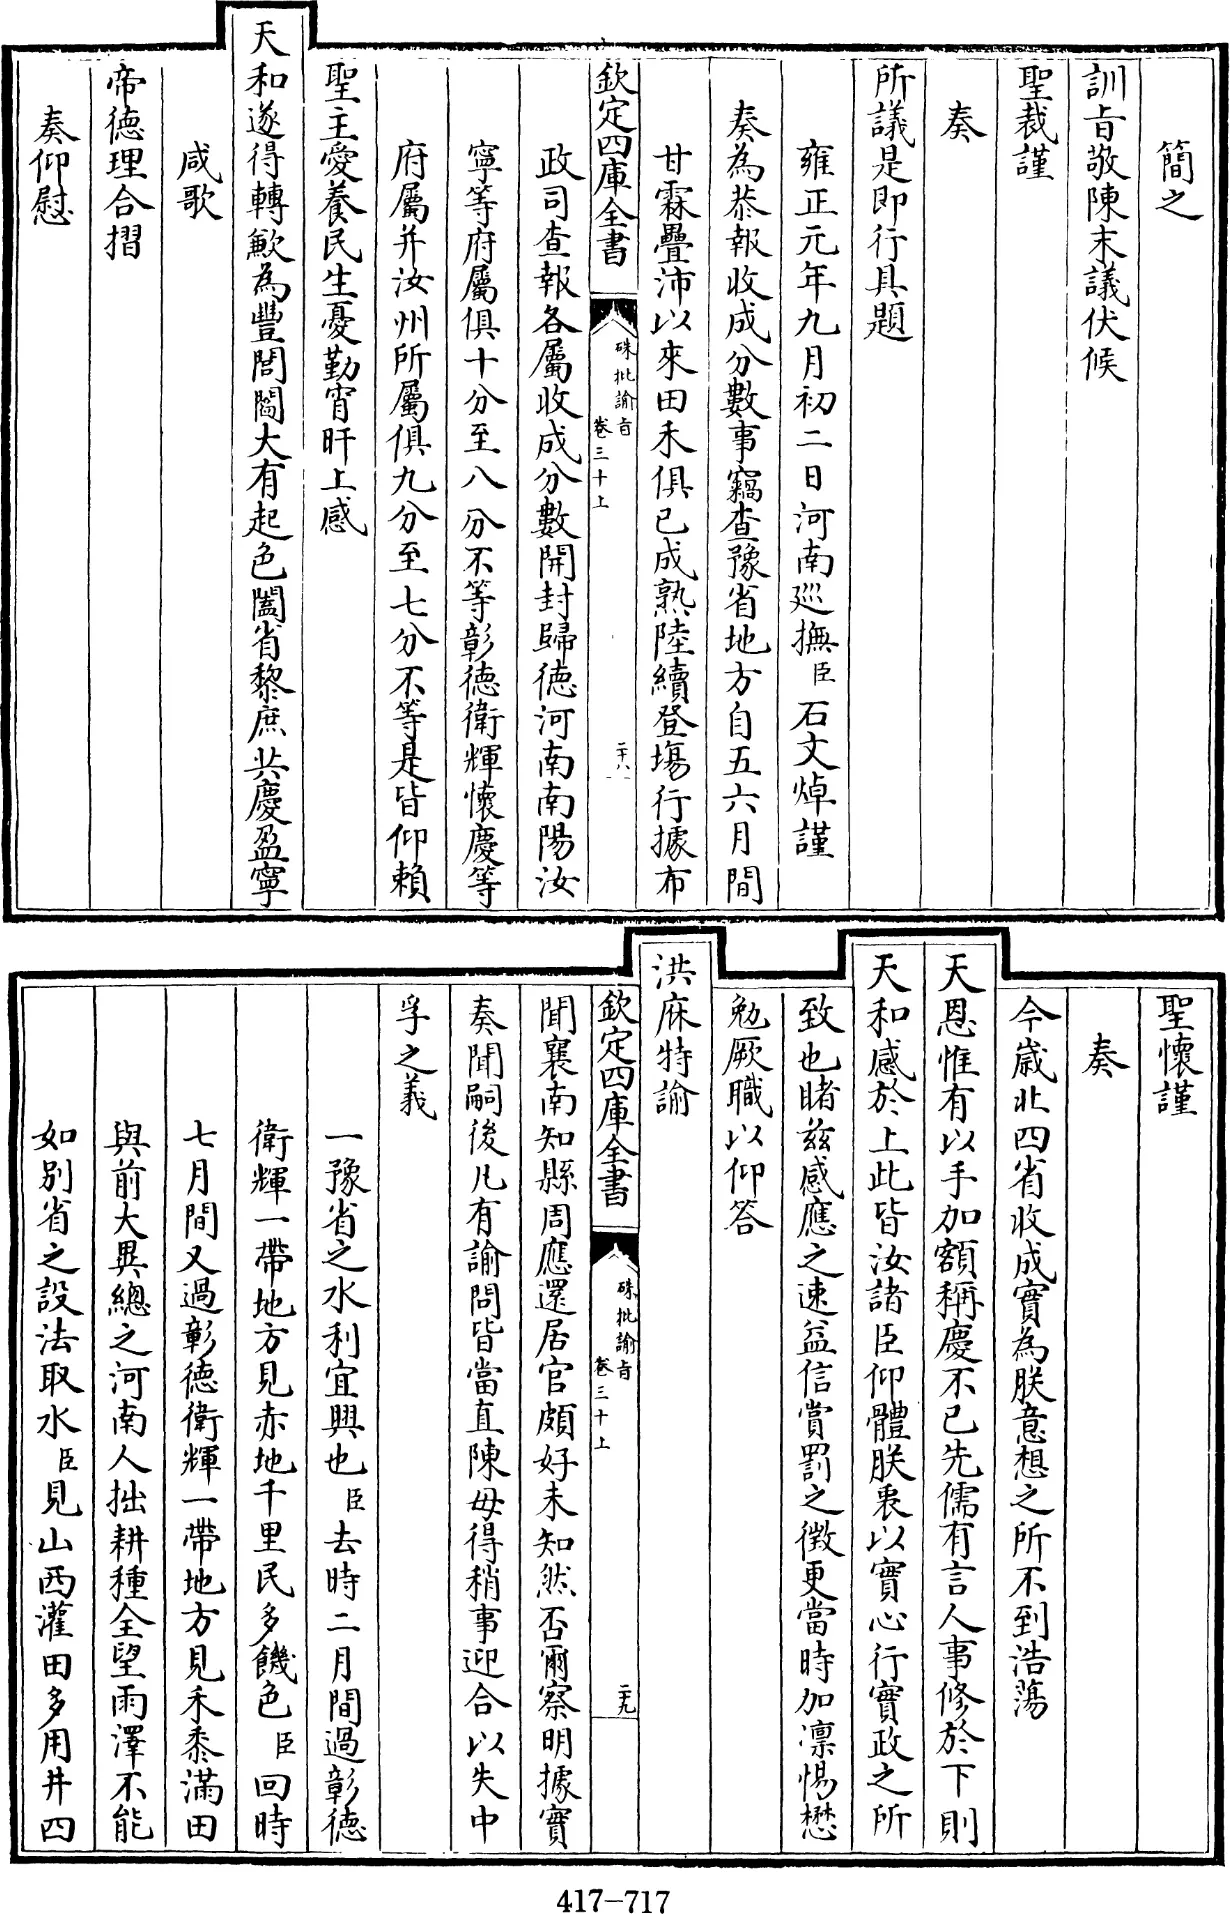 簡之
訓旨敬陳末議伏候
聖裁謹
奏
所議是即行具題
雍正元年九月初二日河南廵撫臣石文焯謹
奏為恭報收成分數事竊查豫省地方自五六月間
甘霖疊沛以來田禾俱已成熟陸續登塲行據布
欽定四庫全書
硃批諭旨
卷三十上
二十八
政司查報各屬收成分數開封歸德河南南陽汝
寧等府屬俱十分至八分不等彰德衛輝懷慶等
府屬并汝州所屬俱九分至七分不等是皆仰賴
聖主愛養民生憂勤宵旰上感
天和遂得轉歉為豐閭閻大有起色闔省黎庶共慶盈寧
咸歌
帝德理合摺
奏仰慰
聖懷謹
奏
今歲北四省收成實為朕意想之所不到浩蕩
天恩惟有以手加額稱慶不已先儒有言人事修於下則
天和感於上此皆汝諸臣仰體朕衷以實心行實政之所
致也睹兹感應之速益信賞罰之徵更當時加凛惕懋
勉厥職以仰答
洪庥特諭
欽定四庫全書
硃批諭旨
卷三十上
二十九
聞襄南知縣周應還居官頗好未知然否爾察明據實
奏聞嗣後凡有諭問皆當直陳毋得稍事迎合以失中
孚之義
一豫省之水利宜興也臣去時二月間過彰德
衛輝一帶地方見赤地千里民多饑色臣回時
七月間又過彰德衛輝一帶地方見禾黍滿田
與前大異總之河南人拙耕種全望雨澤不能
如别省之設法取水臣見山西灌田多用井四
417-717